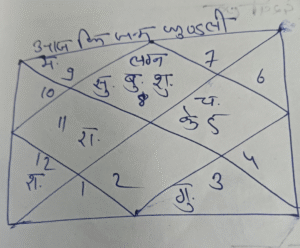 आज कि जन्म कुण्डली
मं. लग्न 7
10 9 सु. बु. शु. 6
8
11 च.
रा. के 5
12 4
श. 1 2 गु. 3